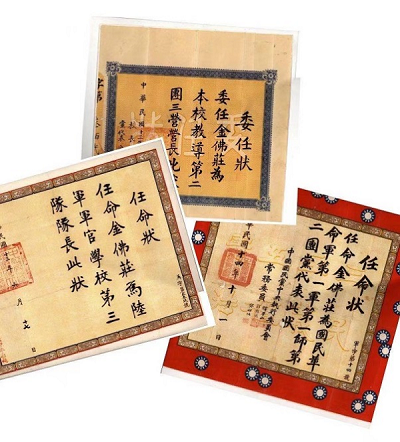 委任狀
委任金佛莊為
本校教導第二
團三營營長此
校長
黨代表
中華民國十
任命狀
任命金佛莊為陸
軍軍官學校第三
隊隊長此狀
月 日
任命狀
任命金佛莊為國民革
命軍第一軍第一師第
二團黨代表此狀
中國國民黨中央執行委員會
常務委員
民國十四年十月一日